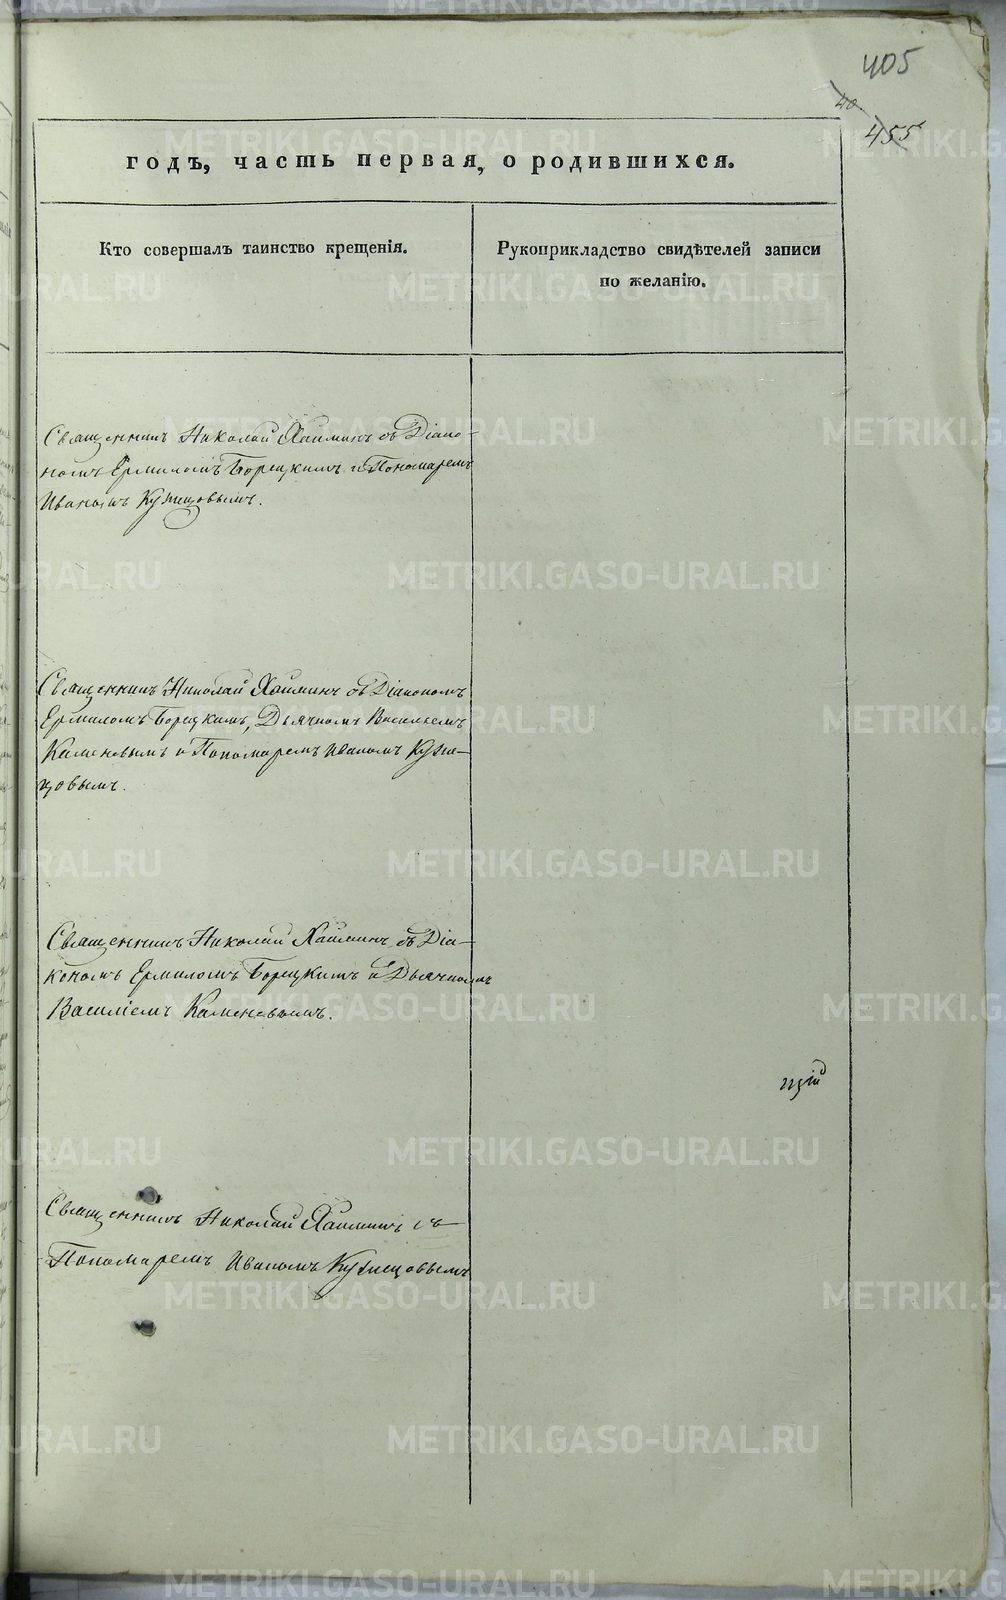 405
40
455
годъ, часть первая, о родившихся.
Кто совершалъ таинство крещенія.
Рукоприкладство свидѣтелей записи
по желанію.
Священникъ Николай Хаиминъ съ Діако-
номъ Ермиломъ Борецкимъ и Пономаремъ
Иваномъ Кузнецовымъ.
Священникъ Николай Хаиминъ съ Діакономъ
Ермиломъ Борецкимъ, Дьячкомъ Васильемъ
Каменевымъ и Пономаремъ Иваномъ Кузне-
цовымъ.
Священникъ Николай Хаиминъ съ Діа-
кономъ Ермиломъ Борецкимъ и Дьячкомъ
Василіемъ Каменевымъ.
Священникъ Николай Хаиминъ съ
Пономаремъ Иваномъ Кузнецовымъ
METRIKI.GASO-URAL.RU